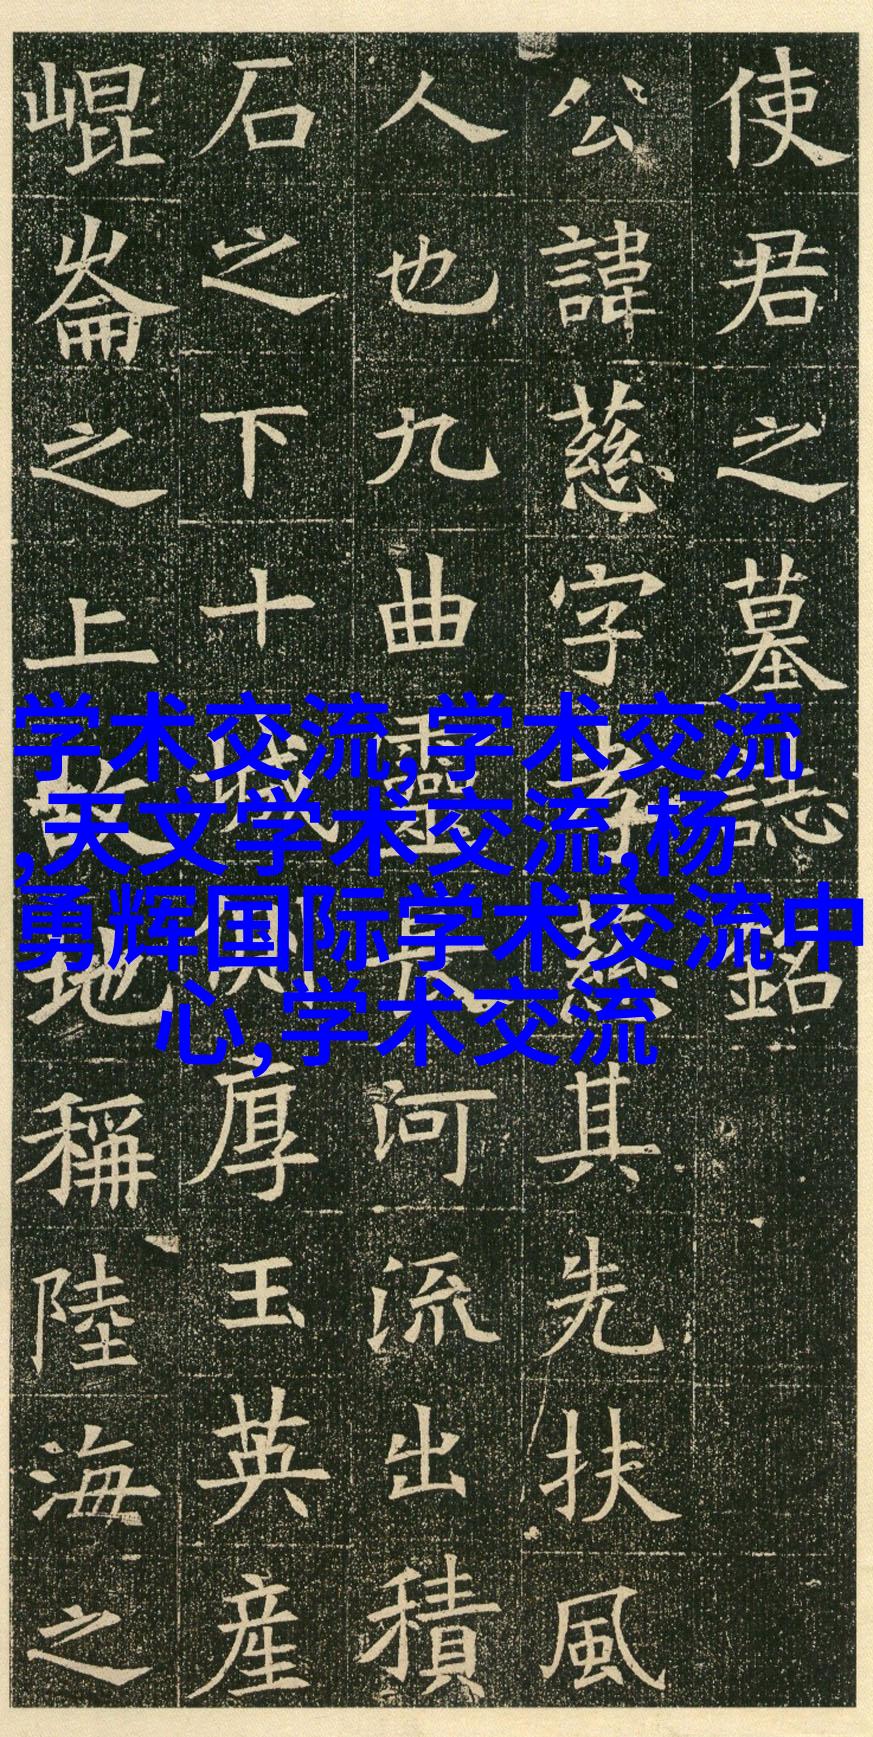 使君之墓誌銘
公諱慈字孝慈其先扶風
人也九曲靈長河流出積
石之下十城價厚玉英産
崐崙之上故地稱陸海之
学术交流,学术交流
,天文学术交流,杨
勇辉国际学术交流中
心,学术交流